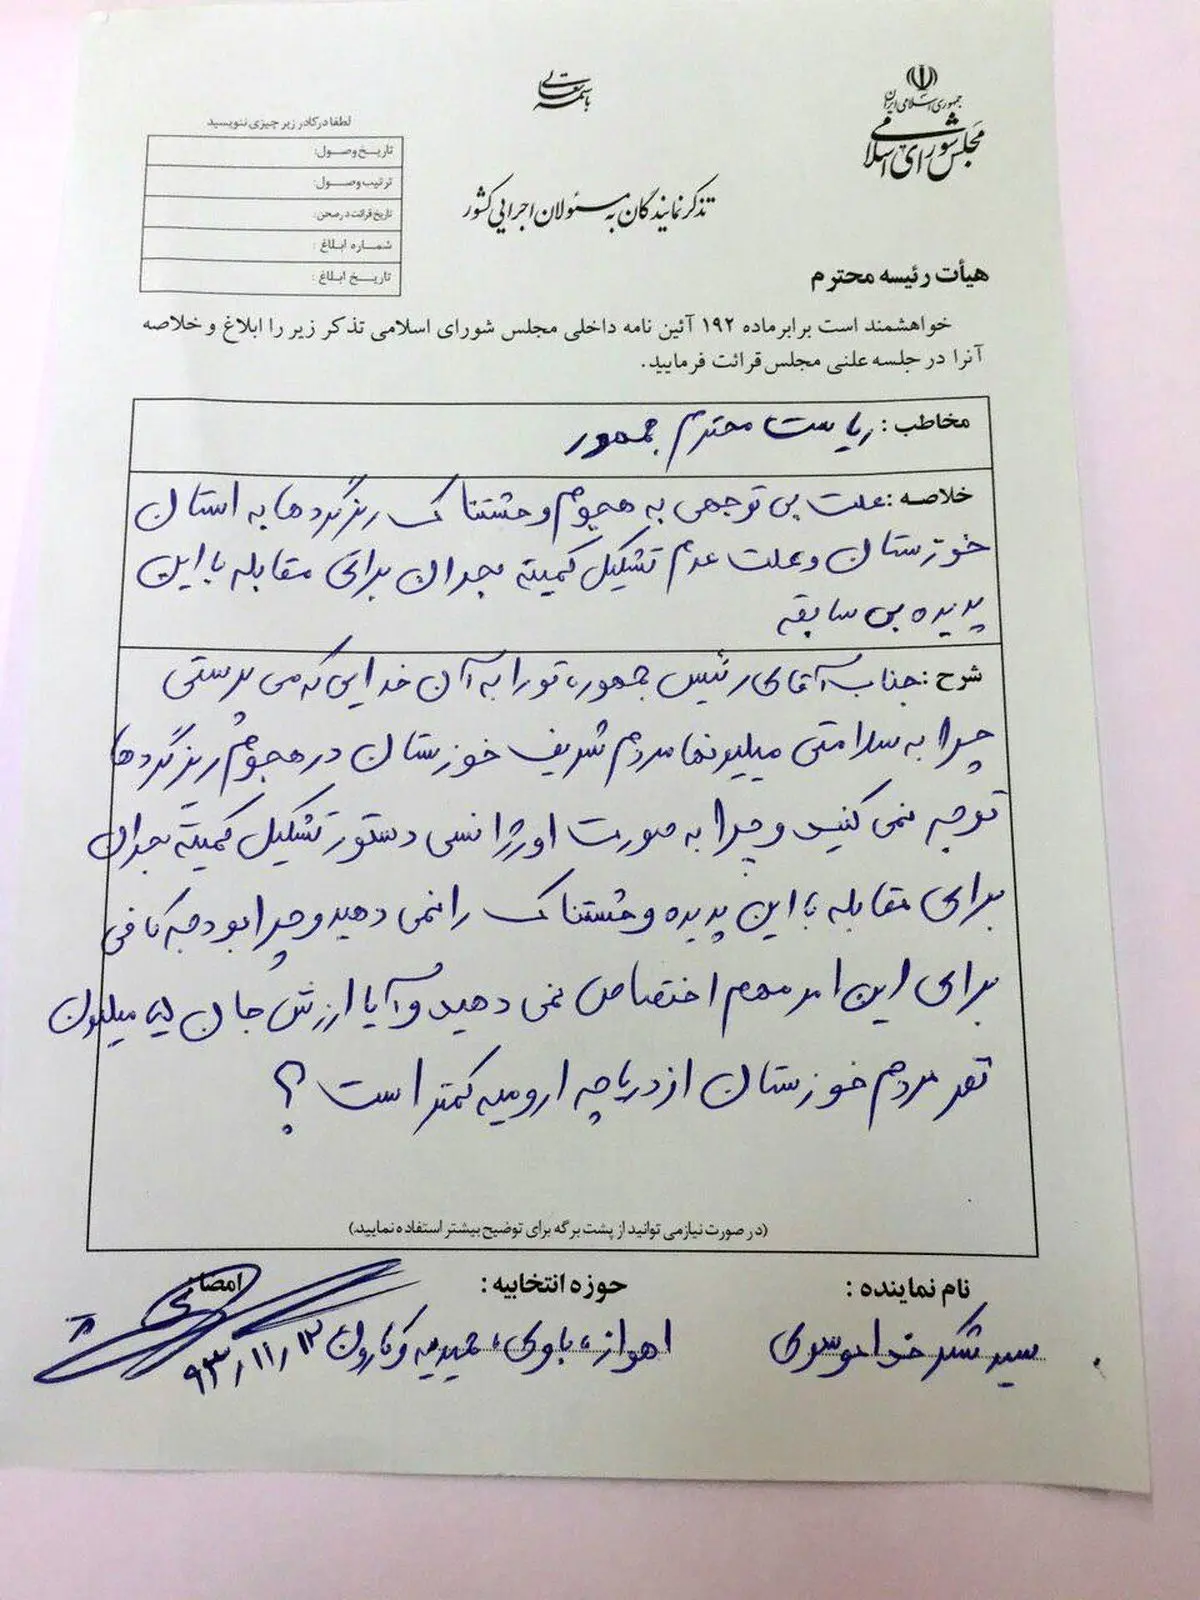 باسمه تعالی
جمهوری اسلامی ایران
مجلس شورای اسلامی
لطفا در کادر زیر چیزی ننویسید
تاریخ وصول:
ترتیب وصول:
تاریخ قرائت در صحن:
شماره ابلاغ :
تاریخ ابلاغ :
تذکر نمایندگان به مسئولان اجرایی کشور
هیأت رئیسه محترم
خواهشمند است برابر ماده ۱۹۲ آئین نامه داخلی مجلس شورای اسلامی تذکر زیر را ابلاغ و خلاصه
آنرا در جلسه علنی مجلس قرائت فرمایید.
مخاطب : ریاست محترم جمهور
خلاصه : علت بی توجهی به هجوم وحشتناک ریزگردها به استان
خوزستان و علت عدم تشکیل کمیته بحران برای مقابله با این
پدیده بی سابقه
شرح : جناب آقای رئیس جمهور، تو را به آن خدایی که می پرستی
چرا به سلامتی میلیونها مردم شریف خوزستان در هجوم ریزگردها
توجه نمی کنید و چرا به صورت اورژانسی دستور تشکیل کمیته بحران
برای مقابله با این پدیده وحشتناک را نمی دهید و چرا بودجه کافی
برای این امر مهم اختصاص نمی دهید و آیا ارزش جان ۵ میلیون
نفر مردم خوزستان از دریاچه ارومیه کمتر است ؟
(در صورت نیاز می توانید از پشت برگه برای توضیح بیشتر استفاده نمایید.)
نام نماینده : حوزه انتخابیه : امضا:
سید شکر خدا موسوی اهواز، باوی، حمیدیه و کارون ۹۳/۱۱/۱۳